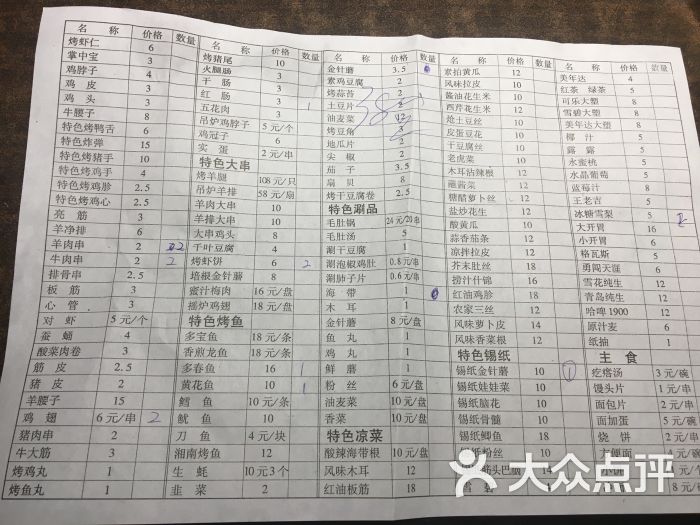 名 称 价格 数量
烤虾仁 6
掌中宝 3
鸡脖子 4
鸡皮 3
鸡头 3
牛腰子 8
特色烤鸭舌 6
特色炸弹 15
特色烤猪手 10
特色烤鸡手 4
特色烤鸡胗 2.5
特色烤鸡心 2.5
亮筋 3
羊净排 6
羊肉串 2
牛肉串 2 2
排骨串 2.5
板筋 3
心管 3
对虾 5元/个
蚕蛹 4
酸菜肉卷 3
筋皮 2.5
猪皮 2
羊腰子 15
鸡翅 6元/串 2
猪肉串 2
牛大筋 3
烤鸡丸 1
烤鱼丸 1
名 称 价格 数量
烤猪尾 10
火腿肠 3
干肠 3
红肠 3
五花肉 3 1
吊炉鸡脖子 5元/个
鸡冠子 6
实蛋 2元/串
特色大串
烤羊腿 108元/只
吊炉羊排 58元/扇
羊肉大串 10
羊排大串 10
大串鸡头 8
千叶豆腐 4
烤虾饼 6 2
培根金针蘑 8
蜜汁梅肉 16元/盘
摇炉鸡翅 18元/盘
特色烤鱼
多宝鱼 18元/条
香煎龙鱼 18元/条
多春鱼 16 1
黄花鱼 10 1
鳕鱼 10元/条
鱿鱼 10
刀鱼 4元/块
湘南烤鱼 12
生蚝 10元3个
韭菜 2
名 称 价格 数量
金针蘑 3.5
素鸡豆腐 2
烤蒜苔 2
土豆片 2
油麦菜 12
烤豆角 3
地瓜片 2
尖椒 2
茄子 3.5
扇贝 8
烤干豆腐卷 2.5
特色涮品
毛肚锅 24元/20串
毛肚汤 5
涮干豆腐 1
涮泡椒鸡肚 0.8元/串
涮肺子片 0.6元/串
海带 1
木耳 1
金针蘑 8元/盘
鱼丸 1
鸡丸 1
鲜蘑 1
粉丝 6元/盘
油麦菜 10元/盘
香菜 10元/盘
特色凉菜
酸辣海带根 10
风味木耳 12
红油板筋 18
名 称 价格 数量
素拍黄瓜 12
风味拉皮 10
酱油花生米 10
西芹花生米 10
炝土豆丝 10
皮蛋豆花 10
干豆腐丝 10
老虎菜 10
木耳沾辣根 12
蘸酱菜 10
糖醋萝卜丝 12
盐炒花生 12
酸黄瓜 10
蒜香茄条 12
凉拌拉皮 12
芥末肚丝 18
捞汁什锦 16
红油鸡胗 18
农家三丝 12
风味萝卜皮 14
风味香菜根 12
特色锡纸
锡纸金针蘑 10 1
锡纸娃娃菜 10
锡纸脑花 10
锡纸骨髓 10
锡纸鲫鱼 18
锡纸粉丝 10
名 称 价格 数量
美年达 4
红茶 绿茶 5
可乐大塑 8
雪碧大塑 8
美年达大塑 8
椰汁 5
露露 5
水蜜桃 5
水晶葡萄 5
蓝莓汁 8
王老吉 5
冰糖雪梨 5
大开胃 16
小开胃 6
格瓦斯 5
勇闯天涯 6
雪花纯生 10
青岛纯生 10
哈啤1900 12
原汁麦 6
纸抽 1
主食
疙瘩汤 3元/碗
馒头片 1元/串
面包片 2元/串
面加蛋 5元/碗
烧饼 2元/串
方便面 4元/碗
大众点评